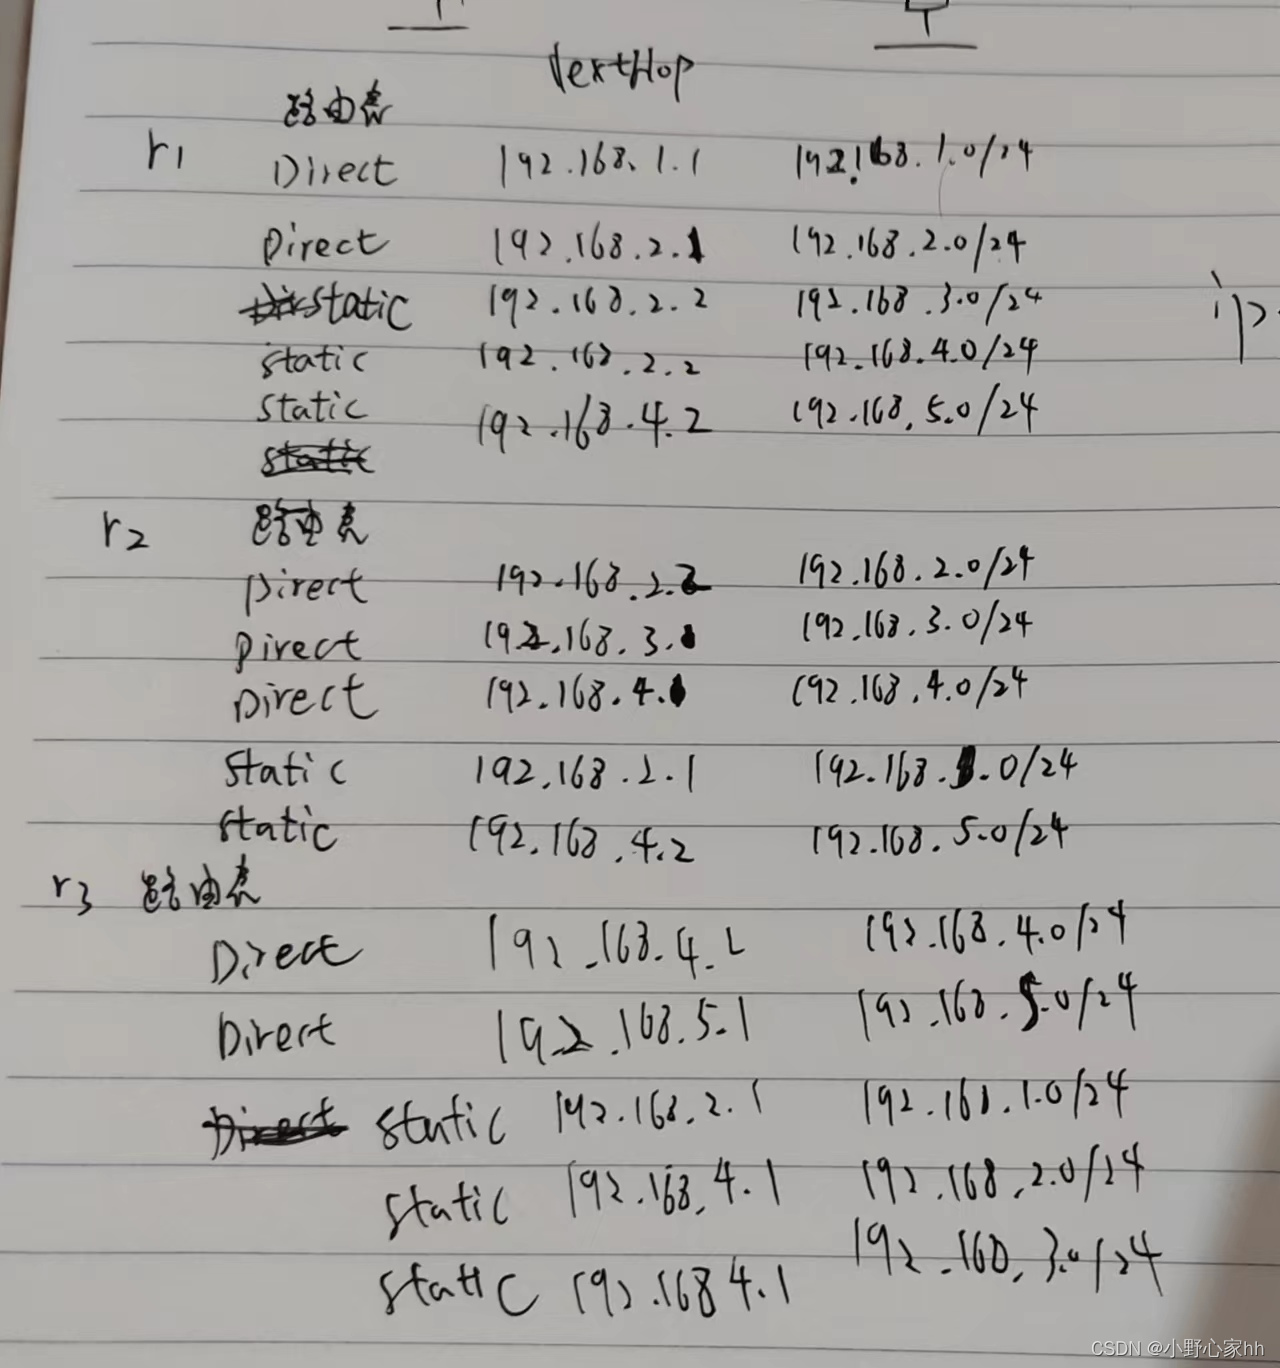 NextHop
路由表
r1 Direct 192.168.1.1 192.168.1.0/24
Direct 192.168.2.1 192.168.2.0/24
static 192.168.2.2 192.168.3.0/24
static 192.168.2.2 192.168.4.0/24
static 192.168.4.2 192.168.5.0/24
static
r2 路由表
Direct 192.168.2.2 192.168.2.0/24
Direct 192.168.3.1 192.168.3.0/24
Direct 192.168.4.1 192.168.4.0/24
static 192.168.2.1 192.168.1.0/24
static 192.168.4.2 192.168.5.0/24
r3 路由表
Direct 192.168.4.2 192.168.4.0/24
Direct 192.168.5.1 192.168.5.0/24
Direct static 192.168.2.1 192.168.1.0/24
static 192.168.4.1 192.168.2.0/24
static 192.168 4.1 192.168.3.0/24
ip
CSDN @小野心家hh